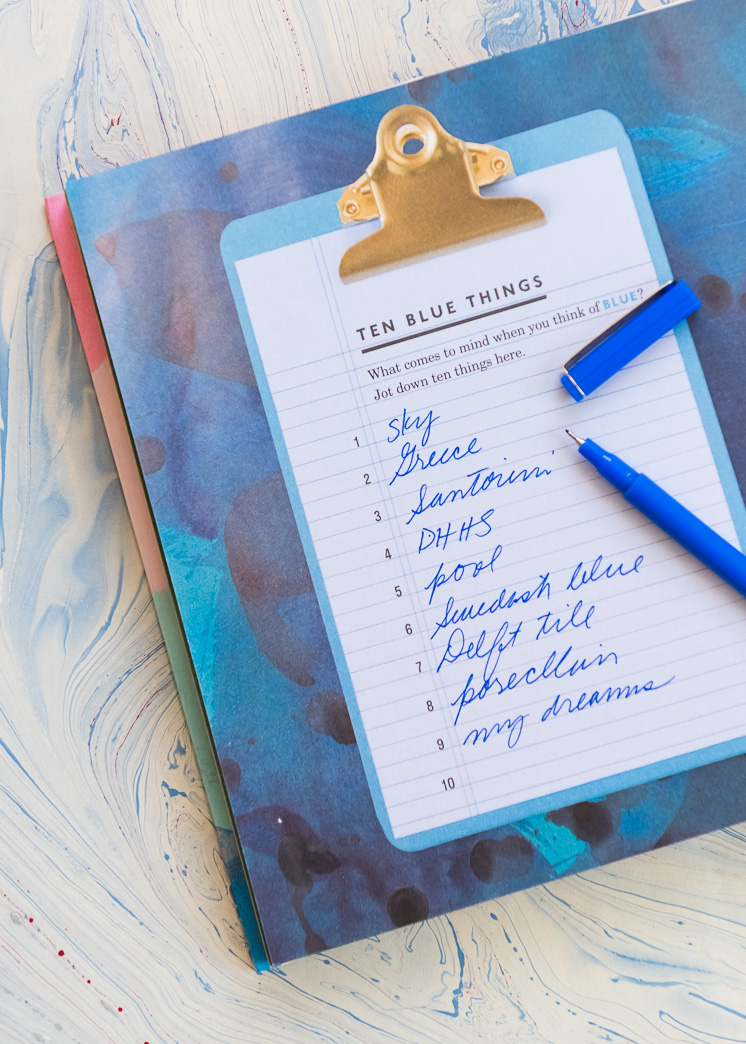 TEN BLUE THINGS
What comes to mind when you think of BLUE?
Jot down ten things here.
1 sky
2 Greece
3 Santorini
4 DHHS
5 pool
6 Swedish blue
7 Delft tile
8 porcellain
9 my dreams
10